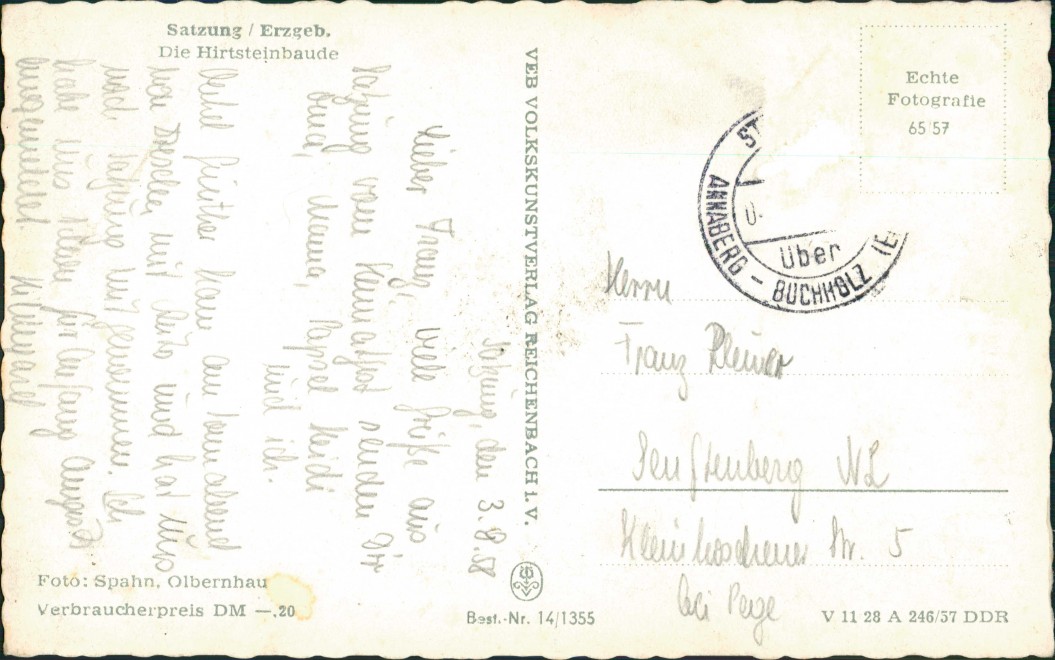 Satzung / Erzgeb.
Die Hirtsteinbaude
Satzung, den 3.8.58
Lieber Franz, viele Grüße aus
Satzung vom Heimatfest senden Dir
Mama, Pappel Heidi
und ich.
Onkel Günther kam am Sonnabend
von mit Auto und hat uns
nach Satzung mitgenommen. Ich
habe uns schon für Anfang August
angemeldet.
VEB VOLKSKUNSTVERLAG REICHENBACH i. V.
Foto: Spahn, Olbernhau
Verbraucherpreis DM —,20
Best.-Nr. 14/1355
Echte
Fotografie
65/57
ST
ANNABERG - BUCHHOLZ (E
Über
Herrn
Franz
Senftenberg NL
Str. 5
bei
V 11 28 A 246/57 DDR